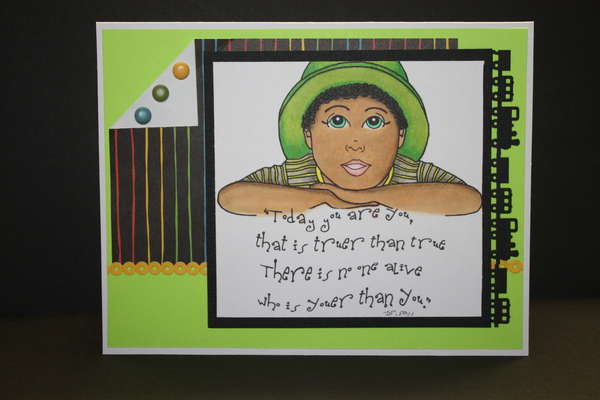 "Today you are you,
that is truer than true
There is no one alive
who is youer than you."